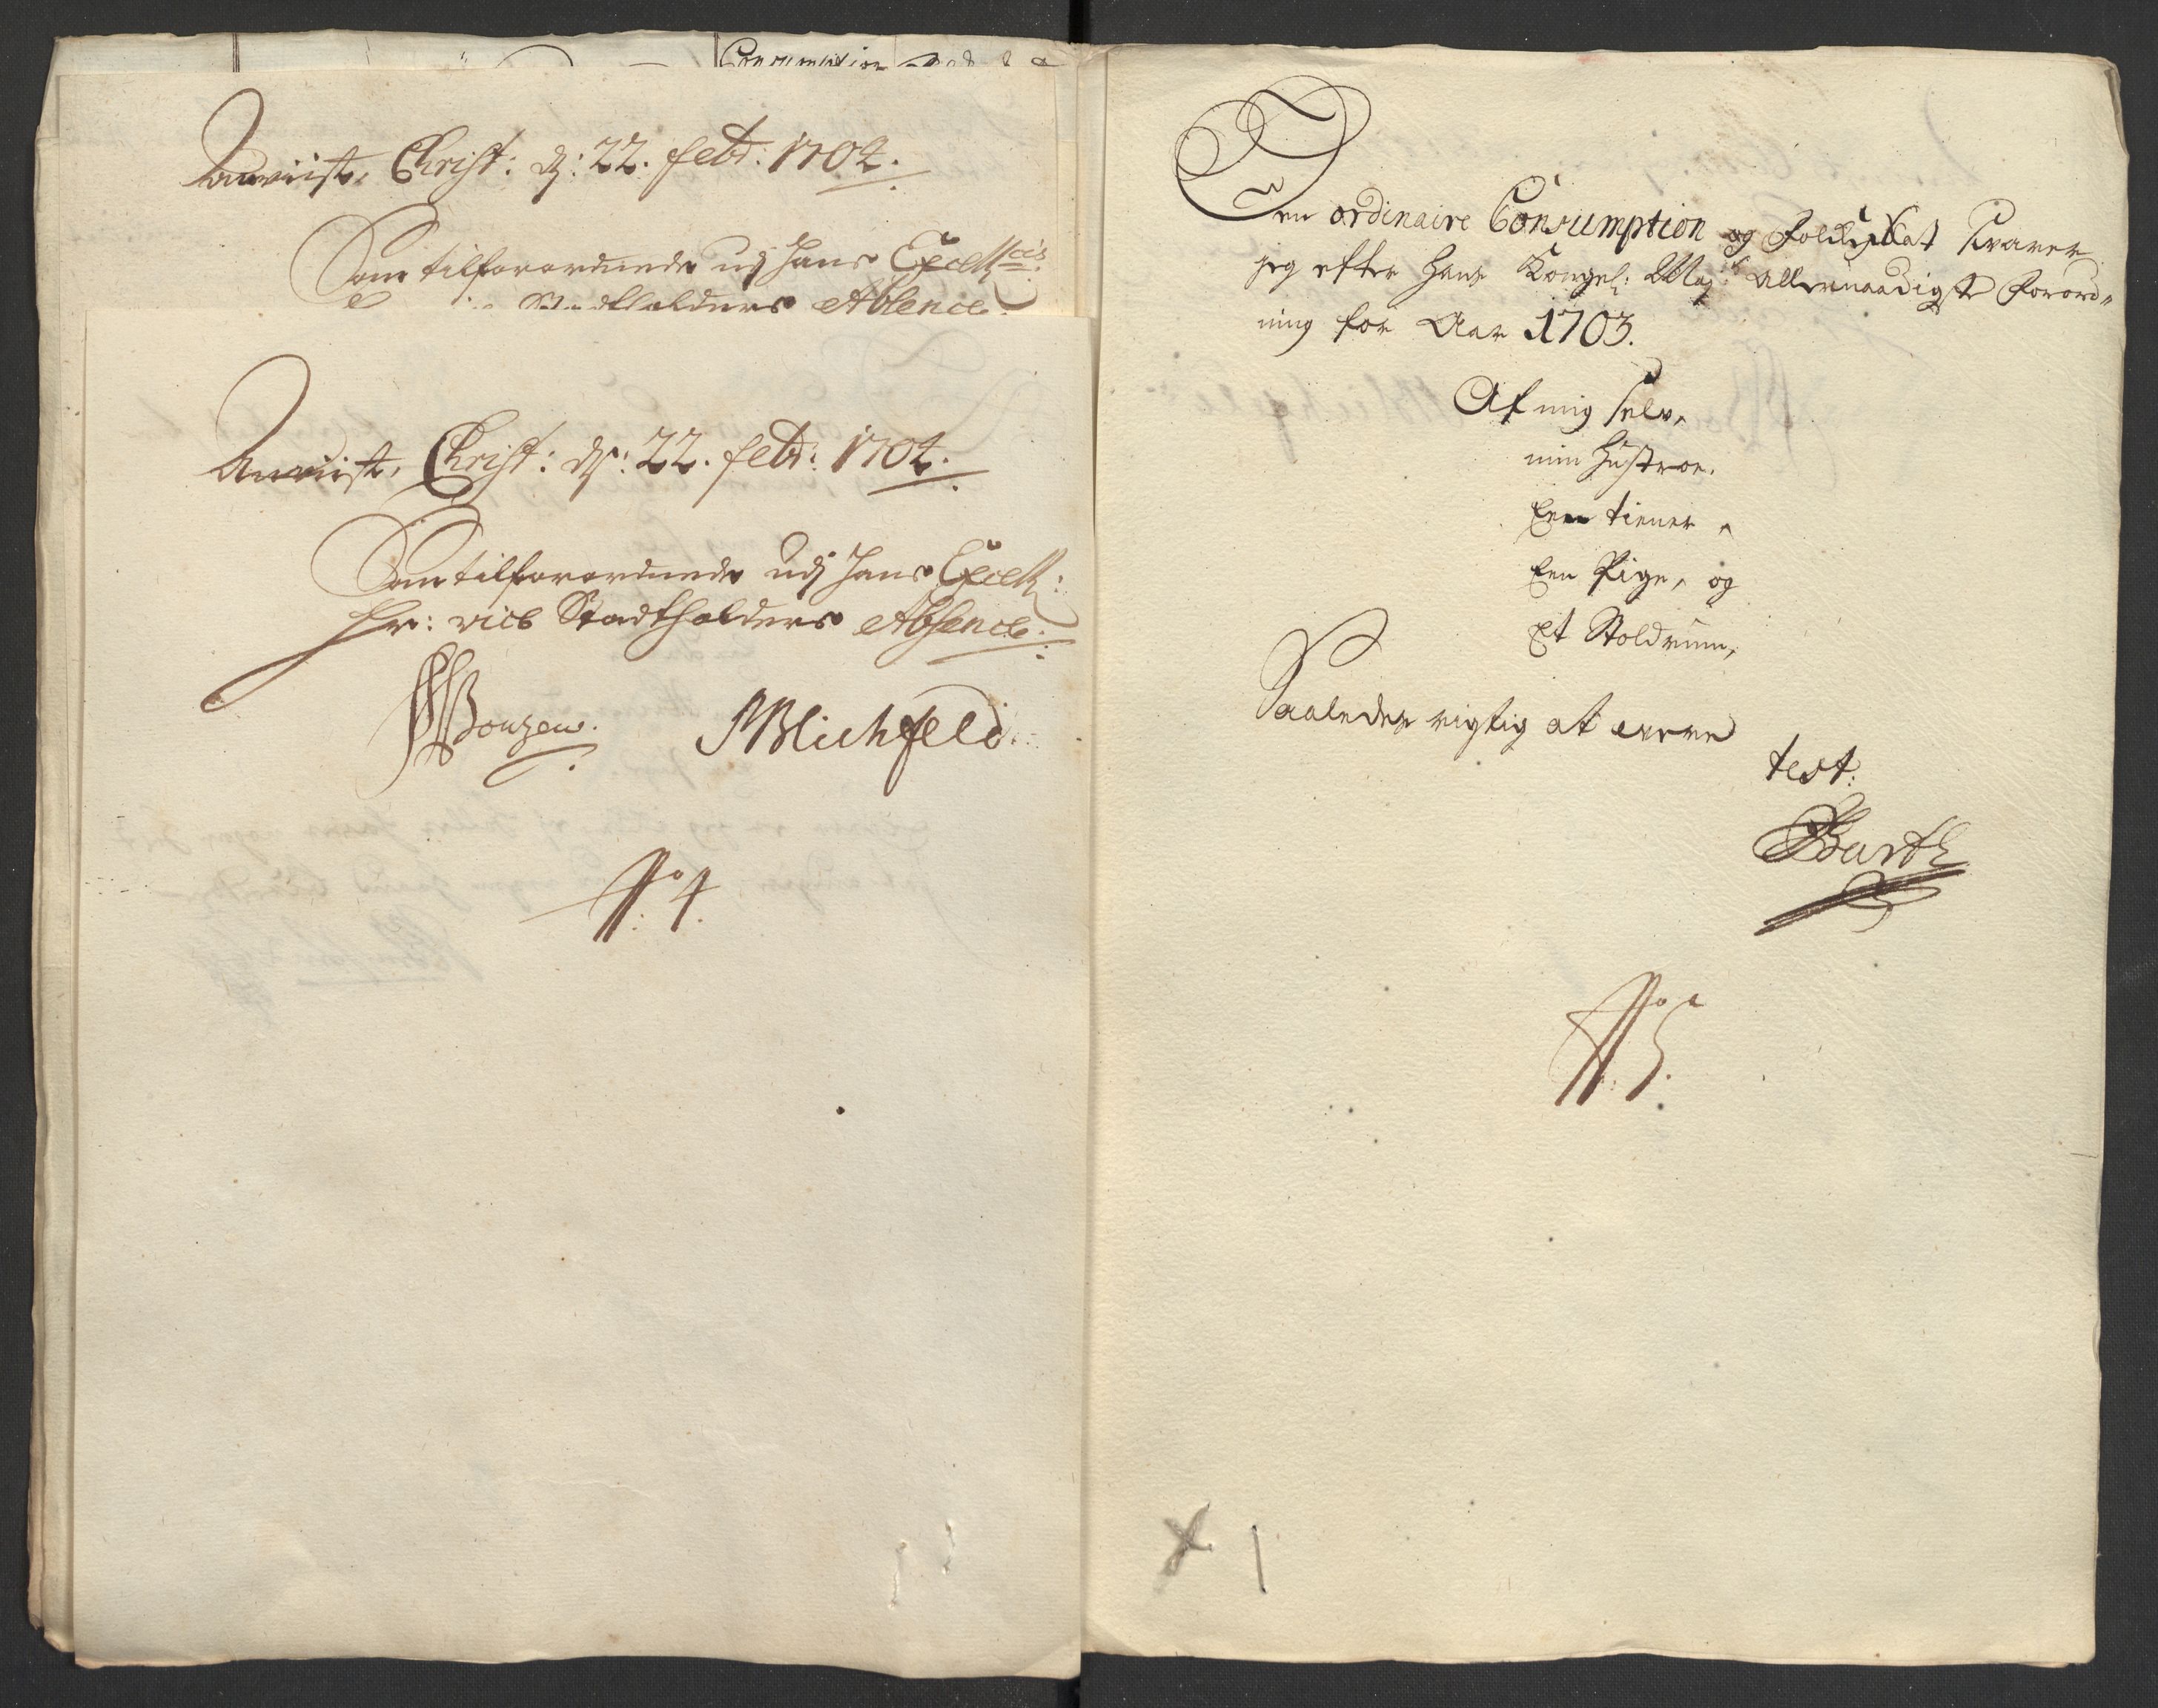 Consumption
Anviist, Christ: d: 22. febr: 1704.
Som tilforordnede udj hans Excell:cis
Stadtholders Absence.
Anviist, Christ: d: 22. febr: 1704.
Som tilforordnede udj hans Excell:
Hr: vice Stadtholders Absence.
Bouzew. Blichfeld.
No: 4.
Den ordinaire Consumption og Folcke Skat svarer
jeg efter Hans Kongel: May:ts Allernaadigste Forord„
ning for Aar 1703.
Af mig selv,
min Hustroe.
Een tiener,
Een Pige, og
Et Stoldrum,
Saaledes rigtig at være
test:
Barth
No 5.